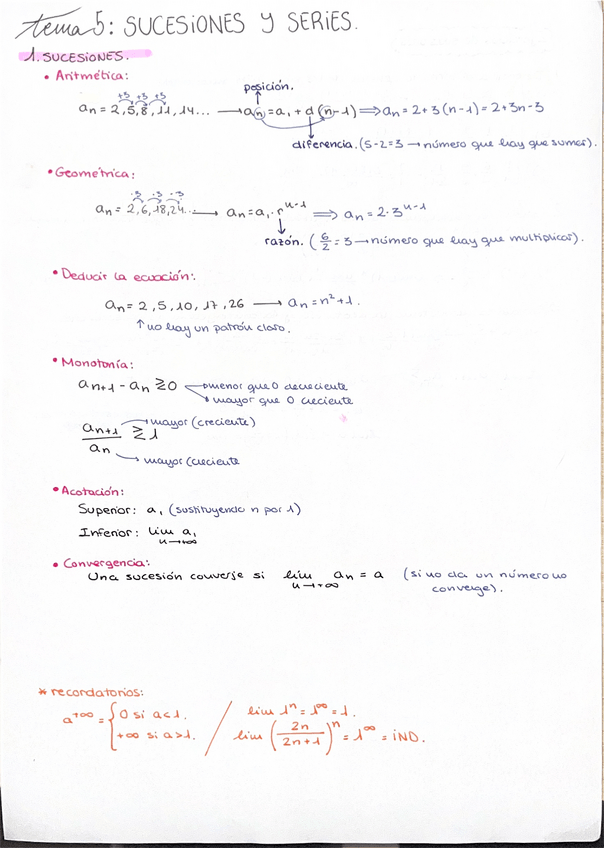 tema 5: SUCESIONES Y SERIES.
1. SUCESIONES.
• Aritmética:
+3 +3 +3
posición.
aₙ = 2, 5, 8, 11, 14... → aₙ = a₁ + d (n-1) ⇒ aₙ = 2 + 3 (n-1) = 2 + 3n - 3
diferencia. (5-2=3 → número que hay que sumar).
• Geometrica:
·3 ·3 ·3
aₙ = 2, 6, 18, 24... → aₙ = a₁ · rⁿ⁻¹ ⇒ aₙ = 2·3ⁿ⁻¹
razón. (6/2 = 3 → número que hay que multiplicar).
• Deducir la ecuación:
aₙ = 2, 5, 10, 17, 26 → aₙ = n² + 1.
↑ no hay un patrón claro.
• Monotonía:
aₙ₊₁ - aₙ ≷ 0 → menor que 0 decreciente
→ mayor que 0 creciente
aₙ₊₁/aₙ ≷ 1 → mayor (creciente)
→ mayor (creciente
• Acotación:
Superior: a₁ (sustituyendo n por 1)
Inferior: lim a₁
n→+∞
• Convergencia:
Una sucesión converje si lim aₙ = a (si no da un número no
n→+∞ converge).
* recordatorios:
a⁺∞ = { 0 si a<1. / lim 1ⁿ = 1^∞ = 1.
+∞ si a>1. / lim (2n/2n+1)ⁿ = 1^∞ = iND.